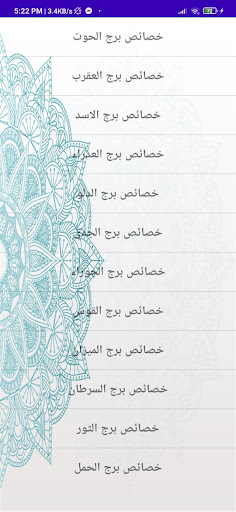 5:22 PM | 3.4KB/s
خصائص برج الحوت
خصائص برج العقرب
خصائص برج الاسد
خصائص برج العذراء
خصائص برج الدلو
خصائص برج الجدي
خصائص برج الجوزاء
خصائص برج القوس
خصائص برج الميزان
خصائص برج السرطان
خصائص برج الثور
خصائص برج الحمل